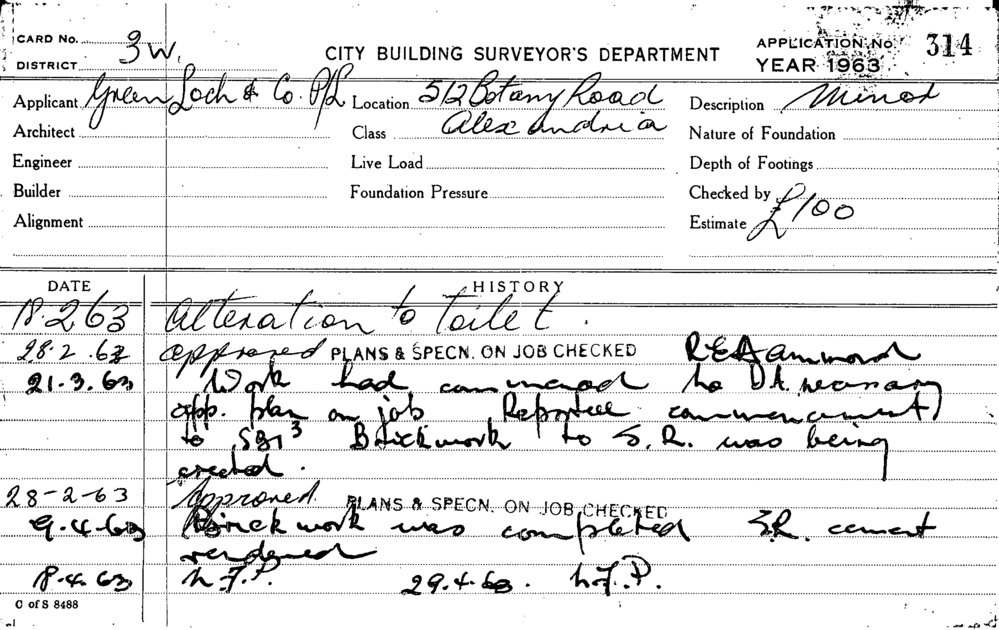 CARD No. 3W.
DISTRICT
CITY BUILDING SURVEYOR'S DEPARTMENT
APPLICATION No. 314
YEAR 1963
Applicant Green Loch & Co. P/L Location 512 Botany Road Description Minor
Architect Class Alexandria Nature of Foundation
Engineer Live Load Depth of Footings
Builder Foundation Pressure Checked by
Alignment Estimate £100
DATE HISTORY
18.2.63 Alteration to toilet.
28.2.63 approved PLANS & SPECN. ON JOB CHECKED R E Hammond
21.3.63 Work had commenced No D.A. necessary
app. plan on job Reported commencement
to SBI 3 Brickwork to S.R. was being
erected.
28-2-63 Approved. PLANS & SPECN. ON JOB CHECKED
9.4.63 Brickwork was completed S.R. cement
rendered
18.4.63 N.F.P. 29.4.63. N.F.P.
C of S 8488